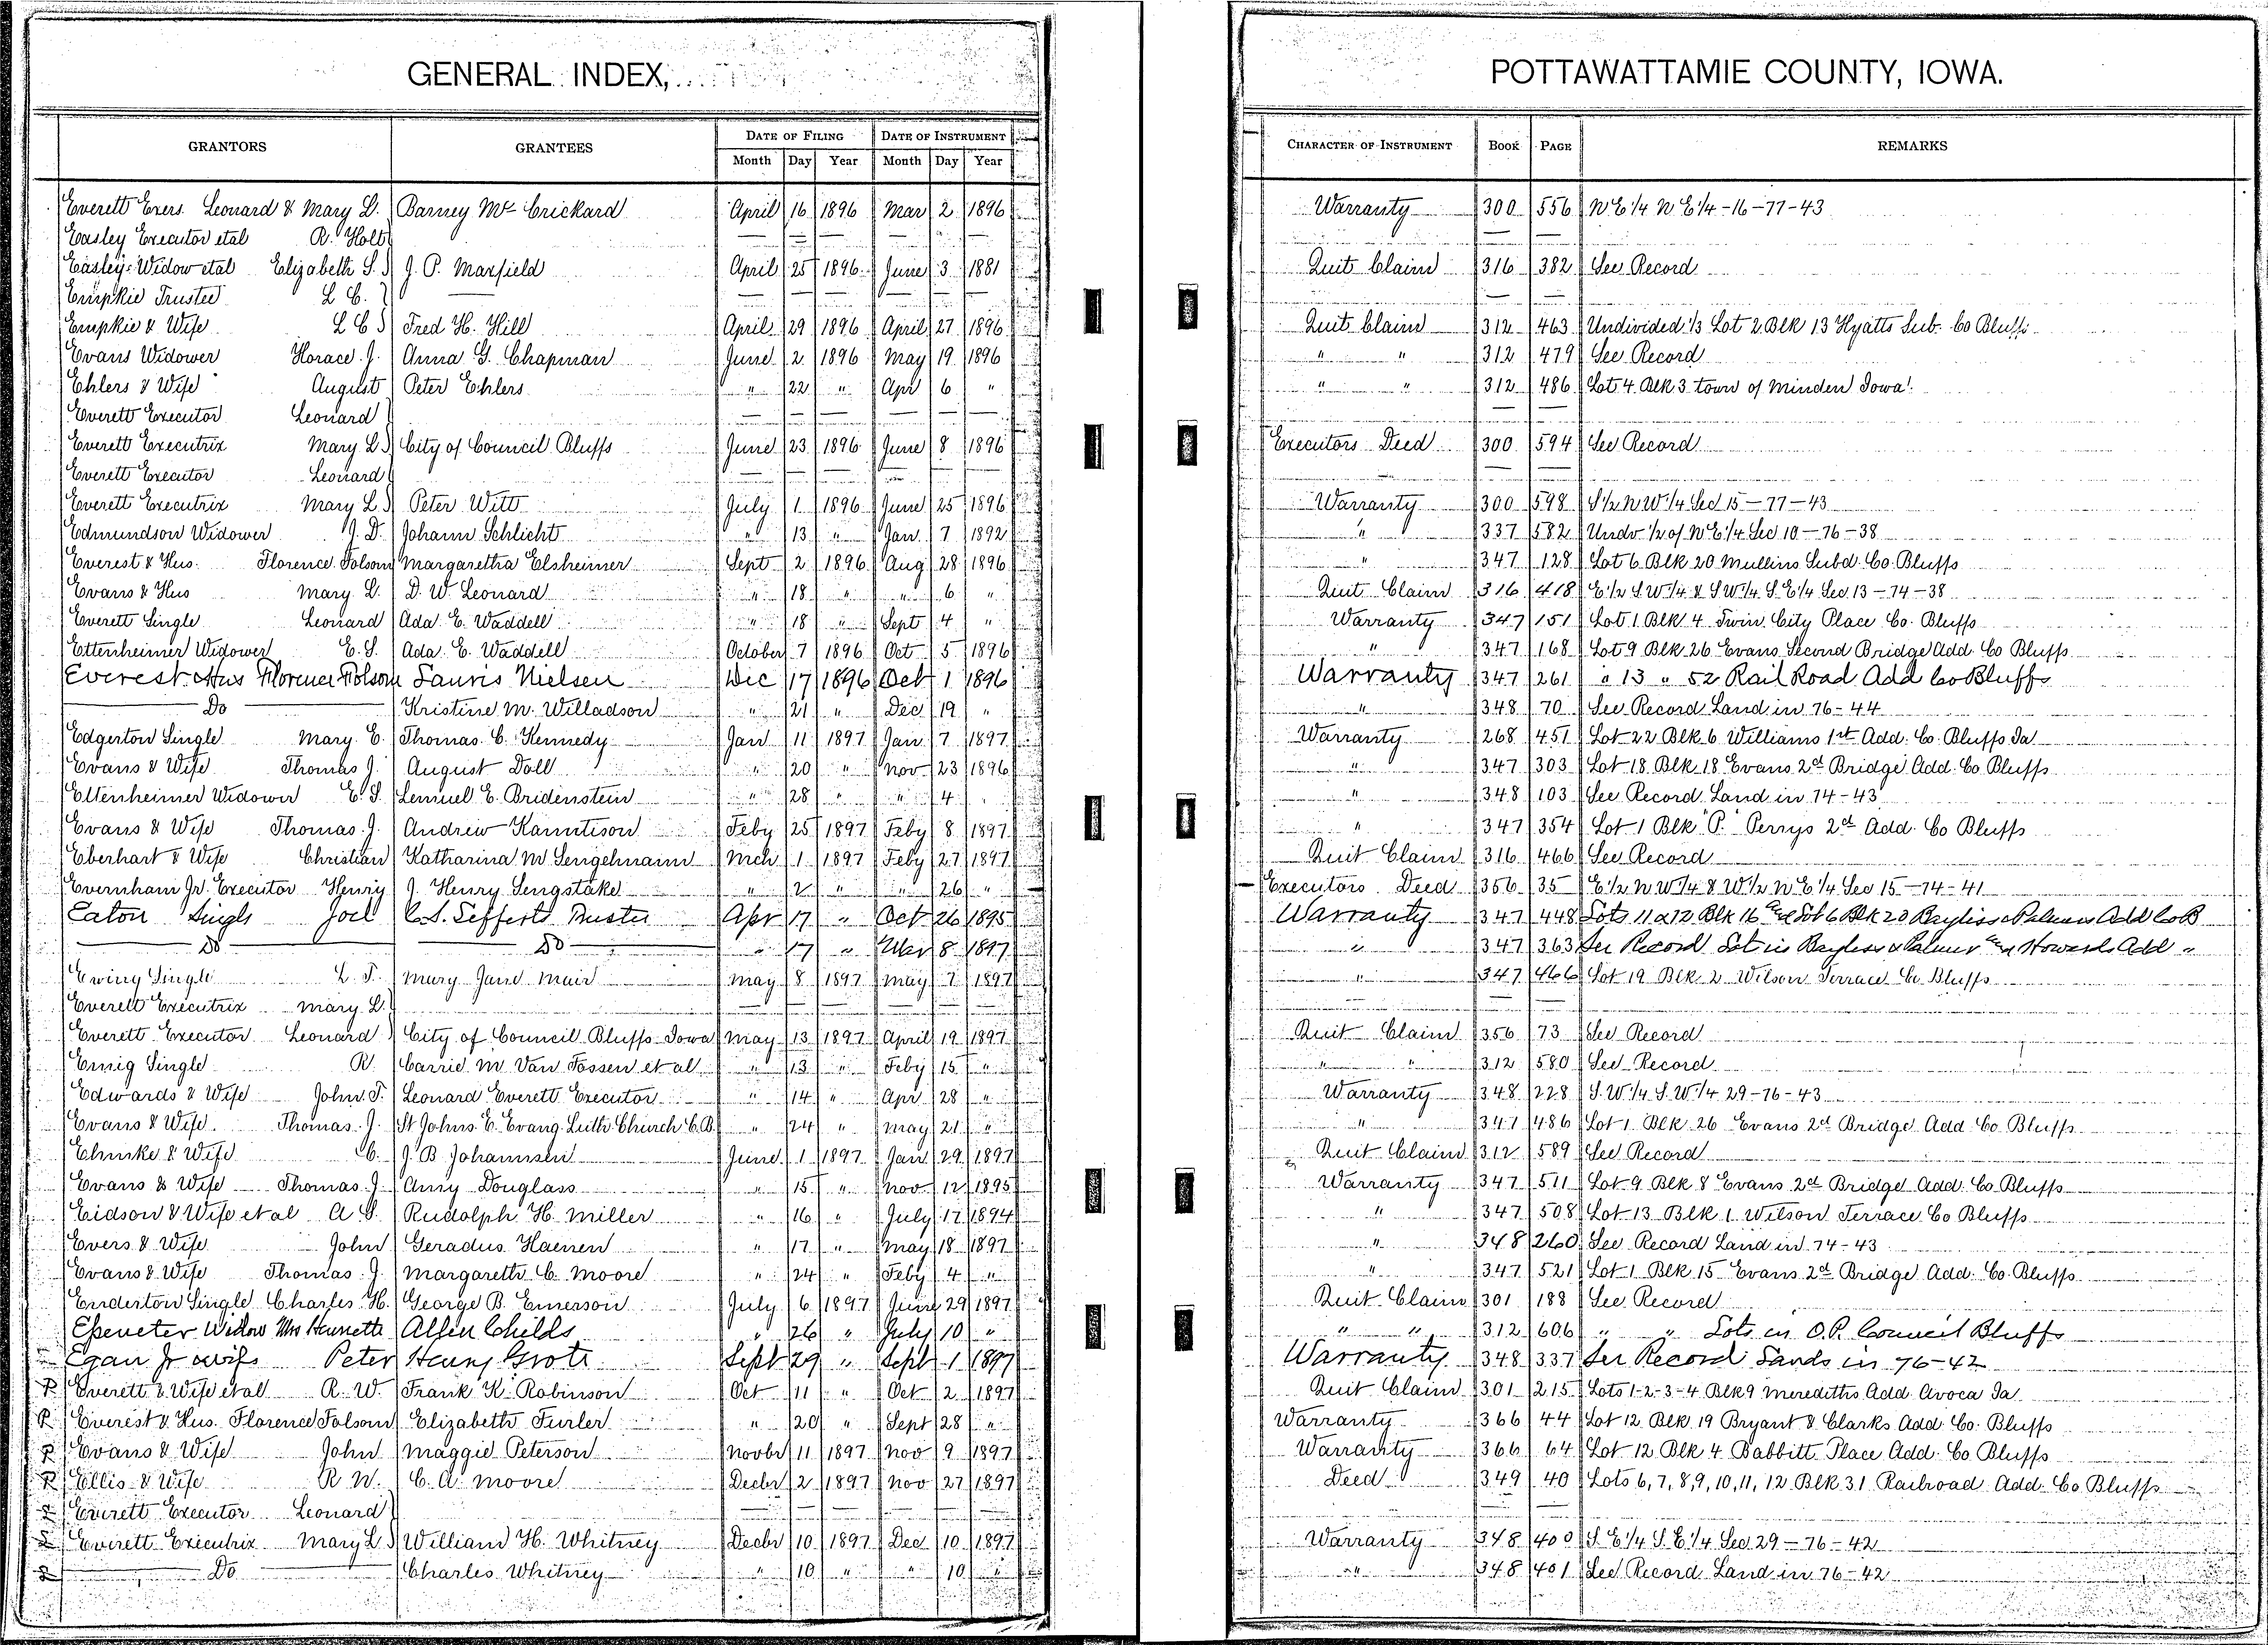 GENERAL INDEX,
POTTAWATTAMIE COUNTY, IOWA.
GRANTORS GRANTEES DATE OF FILING DATE OF INSTRUMENT CHARACTER OF INSTRUMENT BOOK PAGE REMARKS
Month Day Year Month Day Year
Everett Exers. Leonard & Mary L. Barney Mc Crickard April 16 1896 Mar 2 1896 Warranty 300 556 N E 1/4 N E 1/4 - 16 - 77 - 43
Easley Executor etal R. Holt
Easley Widow etal Elizabeth S. J. P. Maxfield April 25 1896 June 3 1881 Quit Claim 316 382 See Record
Empkie Trustee L C.
Empkie & Wife L C Fred H. Hill April 29 1896 April 27 1896 Quit Claim 312 463 Undivided 1/3 Lot 2 Blk 13 Hyatts Sub. Co Bluffs
Evans Widower Horace J. Anna G. Chapman June 2 1896 May 19 1896 " " 312 479 See Record
Ehlers & Wife August Peter Ehlers " 22 " Apr 6 " " " 312 486 Lot 4 Blk 3 town of Minden Iowa
Everett Executor Leonard
Everett Executrix Mary L City of Council Bluffs June 23 1896 June 8 1896 Executors Deed 300 594 See Record
Everett Executor Leonard
Everett Executrix Mary L. Peter Witt July 1 1896 June 25 1896 Warranty 300 598 S 1/2 N W 1/4 Sec 15 - 77 - 43
Edmundson Widower J. D. Johann Schlicht " 13 " Jan 7 1892 " 337 582 Undv 1/2 of N E 1/4 Sec 10 - 76 - 38
Everest & Hus. Florence Folsom Margaretha Elsheimer Sept 2 1896 Aug 28 1896 " 347 128 Lot 6 Blk 20 Mullins Subd. Co. Bluffs
Evans & Hus Mary L. D. W. Leonard " 18 " " 6 " Quit Claim 316 418 E 1/2 S W 1/4 & S W 1/4 S E 1/4 Sec 13 - 74 - 38
Everett Single Leonard Ada E. Waddell " 18 " Sept 4 " Warranty 347 151 Lot 1 Blk 4 Twin City Place Co. Bluffs
Ettenheimer Widower E. S. Ada E. Waddell October 7 1896 Oct 5 1896 " 347 168 Lot 9 Blk 26 Evans Second Bridge Add Co Bluffs
Everest & Hus Florence Folsom Lauris Nielsen Dec 17 1896 Oct 1 1896 Warranty 347 261 " 13 " 52 Rail Road Add Co Bluffs
Do Kristine M. Willadson " 21 " Dec 19 " " 348 70 See Record Land in 76 - 44
Edgerton Single Mary E. Thomas C. Kennedy Jan 11 1897 Jan 7 1897 Warranty 268 451 Lot 22 Blk 6 Williams 1st Add. Co. Bluffs Ia
Evans & Wife Thomas J. August Doll " 20 " Nov 23 1896 " 347 303 Lot 18 Blk 18 Evans 2d Bridge Add. Co Bluffs
Ettenheimer Widower E. S. Lemuel E. Bridenstein " 28 " " 4 " " 348 103 See Record Land in 74 - 43
Evans & Wife Thomas J. Andrew Kanntison Feby 25 1897 Feby 8 1897 " 347 354 Lot 1 Blk "P." Perrys 2d Add. Co Bluffs
Eberhart & Wife Christian Katharina M Sengelmann Mch 1 1897 Feby 27 1897 Quit Claim 316 466 See Record
Evernham Jr. Executor Henry J. Henry Sengstake " 2 " " 26 " Executors Deed 356 35 E 1/2 N W 1/4 & W 1/2 N E 1/4 Sec 15 - 74 - 41
Eaton Single Joel C. S. Lefferts Trustee Apr 17 " Oct 26 1895 Warranty 347 448 Lots 11 & 12 Blk 16 and Lot 6 Blk 20 Bayliss & Palmers Add Co B
Do Do " 17 " Mar 8 1897 " 347 363 See Record Lot in Bayliss & Palmer and Howards Add "
Ewing Single L. F. Mary Jane Mair May 8 1897 May 7 1897 " 347 466 Lot 19 Blk 2 Wilson Terrace Co Bluffs
Everett Executrix Mary L.
Everett Executor Leonard City of Council Bluffs Iowa May 13 1897 April 19 1897 Quit Claim 356 73 See Record
Emig Single R. Carrie M Van Fossen et al " 13 " Feby 15 " " " 312 580 See Record
Edwards & Wife John T. Leonard Everett Executor " 14 " Apr 28 " Warranty 348 228 S. W 1/4 S. W 1/4 29 - 76 - 43
Evans & Wife. Thomas J. St Johns E. Evang. Luth. Church C. B. " 24 " May 21 " " 347 486 Lot 1 Blk 26 Evans 2d Bridge Add Co. Bluffs
Ehmke & Wife C. J B Johannsen June 1 1897 Jan 29 1897 Quit Claim 312 589 See Record
Evans & Wife Thomas J. Amy Douglass " 15 " Nov 12 1895 Warranty 347 511 Lot 9 Blk 8 Evans 2d Bridge Add. Co Bluffs
Eidson & Wife et al A S. Rudolph H. Miller " 16 " July 17 1894 " 347 508 Lot 13 Blk 1 Wilson Terrace Co Bluffs
Evers & Wife John Geradus Haenen " 17 " May 18 1897 " 348 260 See Record Land in 74 - 43
Evans & Wife Thomas J. Margareth C. Moore " 24 " Feby 4 " " 347 521 Lot 1 Blk 15 Evans 2d Bridge Add. Co. Bluffs
Enderton Single Charles H. George B. Emerson July 6 1897 June 29 1897 Quit Claim 301 188 See Record
Esseneter Widow Mrs Hannette Alfen Childs " 26 " July 10 " " " 312 606 " " Lots in O.P. Council Bluffs
Egan Jr & wife Peter Henry Grote Sept 29 " Sept 1 1897 Warranty 348 337 See Record Lands in 76 - 42
R Everett & Wife et al R. W. Frank K. Robinson Oct 11 " Oct 2 1897 Quit Claim 301 215 Lots 1-2-3-4 Blk 9 Merediths Add Avoca Ia
R Everest & Hus. Florence Folsom Elizabeth Furler " 20 " Sept 28 " Warranty 366 44 Lot 12 Blk 19 Bryant & Clarks Add Co. Bluffs
R Evans & Wife John Maggie Peterson Novbr 11 1897 Nov 9 1897 Warranty 366 64 Lot 12 Blk 4 Babbitt Place Add. Co Bluffs
R Ellis & Wife R W. C. A. Moore Decbr 2 1897 Nov 27 1897 Deed 349 40 Lots 6, 7, 8, 9, 10, 11, 12 Blk 31 Railroad Add. Co Bluffs
Everett Executor Leonard
Everett Executrix Mary L William H. Whitney Decbr 10 1897 Dec 10 1897 Warranty 348 400 S. E 1/4 S. E 1/4 Sec 29 - 76 - 42
Do Charles Whitney " 10 " " 10 " " 348 401 See Record Land in 76 - 42